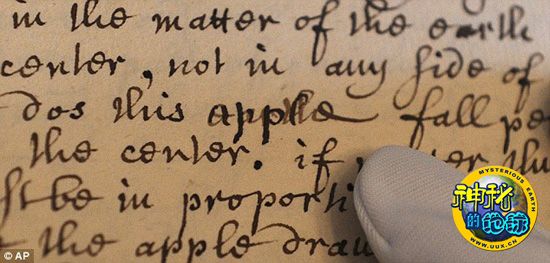 in the matter of the earth
center, not in any side of
dos this apple fall pe
the center. if ter thu
st be in proporti
the apple draw
MYSTERIOUS EARTH
神秘
的地球
WWW.UUX.CN
© AP